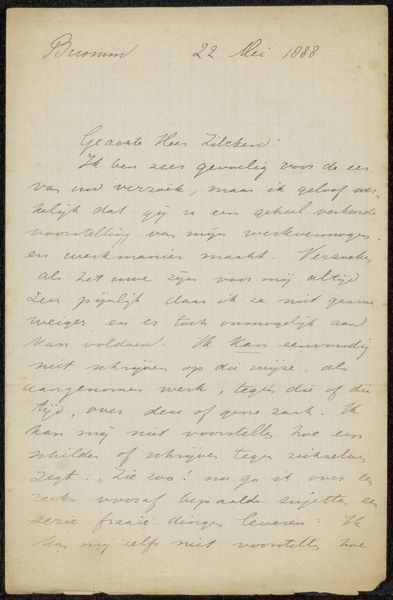 Bussum 22 Mei 1888
Geachte Heer Zilcken!
Ik ben zeer gevoelig voor de eer
van uw verzoek, maar ik geloof wer-
kelijk dat gij u een geheel verkeerde
voorstelling van mijn werkvermogen
en werkmanier maakt. Verzoeken
als het uwe zijn voor mij altijd
zeer pijnlijk daar ik ze niet gaarne
weiger en er toch onmogelijk aan
kan voldoen. Ik kan eenvoudig
niet schrijven op die wijze, als
aangenomen werk, tegen die of die
tijd, over deze of gene zaak. Ik
kan mij niet voorstellen hoe een
schilder of schrijver tegen zichzelven
zegt: "Zie zoo! nu ga ik over een
reeks vooraf bepaalde sujetten een
serie fraaie dingen leveren. Ik
kan mij zelfs niet voorstellen hoe